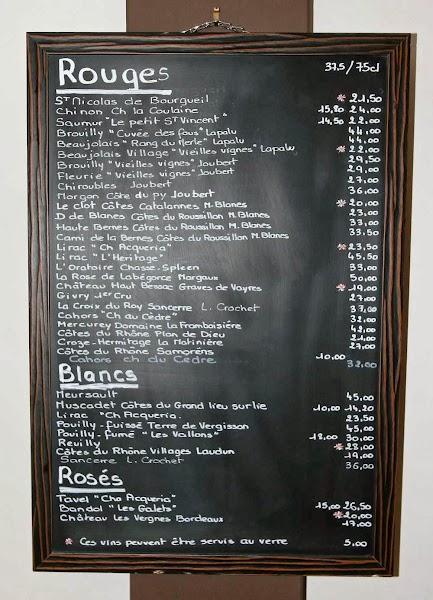 Rouges 37.5/75cl
St Nicolas de Bourgueil * 21,50
Chinon Ch la Coulaine 15,80 24,00
Saumur "Le petit St Vincent" 14,50 22,00
Brouilly "Cuvée des fous" Lapalu 44,00
Beaujolais "Rang du Merle" Lapalu 44,00
Beaujolais Village "Vieilles vignes" Lapalu * 22,00
Brouilly "Vieilles vignes" Joubert 29,50
Fleurie "Vieilles vignes" Joubert 29,00
Chiroubles Joubert 27,00
Morgon Côte du py Joubert 36,00
Le clot Côtes Catalannes M. Blanes * 20,00
D de Blanes Côtes du Roussillon M. Blanes 23,00
Haute Bernes Côtes du Roussillon M. Blanes 33,00
Cami de la Bernes Côtes du Roussillon M. Blanes 33,50
Lirac "Ch Acqueria" * 23,50
Lirac "L'Heritage" 45,50
L'Oratoire Chasse-Spleen 33,00
La Rose de Labégorce Margaux 50,00
Château Haut Bessac Graves de Vayres * 19,00
Givry 1er Cru 27,00
La Croix du Roy Sancerre L. Crochet 37,00
Cahors "Ch du Cèdre" 32,00
Mercurey Domaine la Framboisiére 42,00
Côtes du Rhône Plan de Dieu 21,00
Croze-Hermitage La Matinière 27,00
Côtes du Rhône Samorëns 10,00
Cahors ch du Cedre 32,00
Blancs
Meursault 45,00
Muscadet Côtes du Grand lieu sur lie 10,00 14,20
Lirac "Ch Acqueria. 23,50
Pouilly-fuissé Terre de Vergisson 45,00
Pouilly-fumé "Les Vallons" 18,00 30,00
Reuilly * 28,00
Côtes du Rhône Villages Laudun 19,00
Sancerre L. Crochet 36,00
Rosés
Tavel "Cha Acqueria" 15,00 26,50
Bandol "Les Galets" * 20,00
Château Les Vergnes Bordeaux 17,00
* Ces vins peuvent être servis au verre 5,00